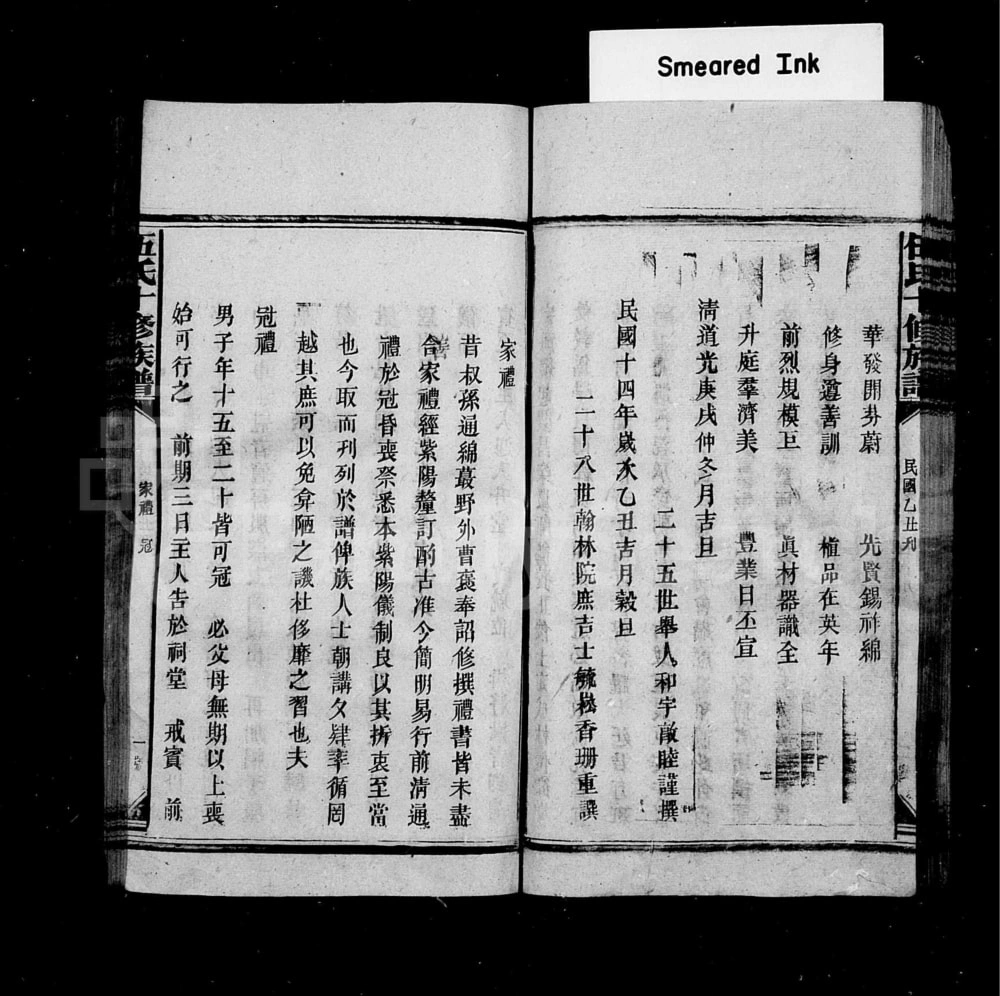 Smeared Ink
伍氏十修族譜
民國乙丑刋
華發開芬蔚 先賢錫祚綿
修身遵善訓 植品在英年
前烈規模巨 眞材器識全
升庭羣濟美 豐業日丕宣
淸道光庚戌仲冬月吉旦
二十五世舉人和宇敵睦謹撰
民國十四年歲次乙丑吉月穀旦
二十八世翰林院庶吉士毓崧香珊重譔
家禮
昔叔孫通綿蕞野外曹褒奉詔修撰禮書皆未盡
善家禮經紫陽釐訂酌古准今簡明易行前淸通
禮於冠昏喪祭悉本紫陽儀制良以其折衷至當
也今取而刋列於譜俾族人士朝講夕肄率循罔
越其庶可以免弇陋之譏杜侈靡之習也夫
冠禮
男子年十五至二十皆可冠 必父母無期以上喪
始可行之 前期三日主人告於祠堂 戒賓 前
伍氏十修族譜
家禮 冠
一